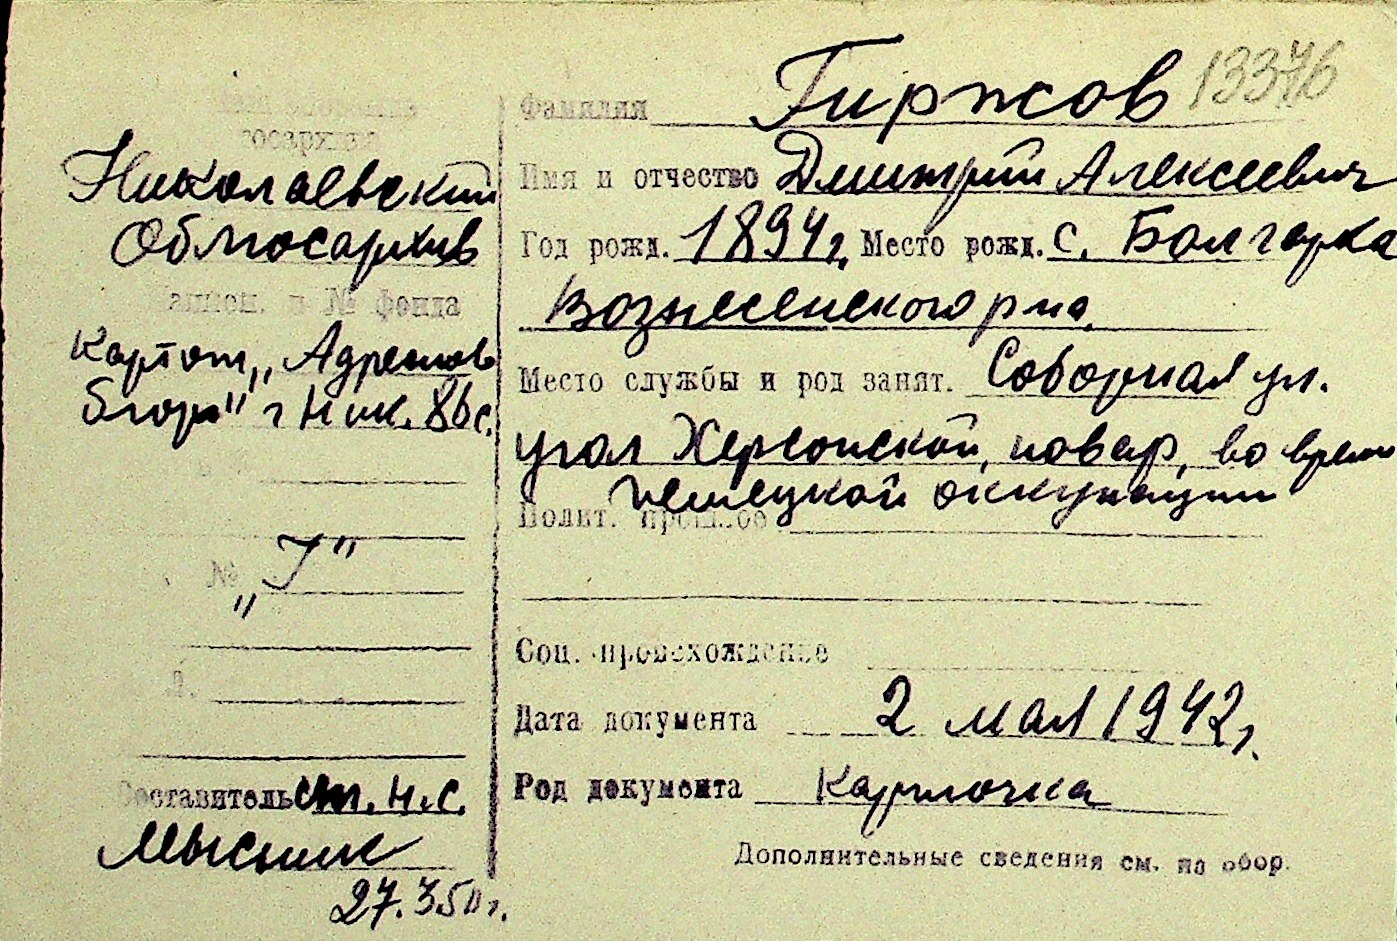 Гиржов 13376
Фамилия
госархива
Николаевский
Облгосархив
№ фонда
Картот. „Адресов
бюро" г Ник. 86 с.
№ „Г"
Составитель ст. н.с.
Мысник
27.3.50 г.
Имя и отчество Дмитрий Алексеевич
Год рожд. 1894 г. Место рожд. с. Болгарка
Вознесенского р-на
Место службы и род занят. Соборная ул.
угол Херсонской, повар, во время
немецкой оккупации
Полит. прошлое
Соц. происхождение
Дата документа 2 мая 1942 г.
Род документа Карточка
Дополнительные сведения см. на обор.